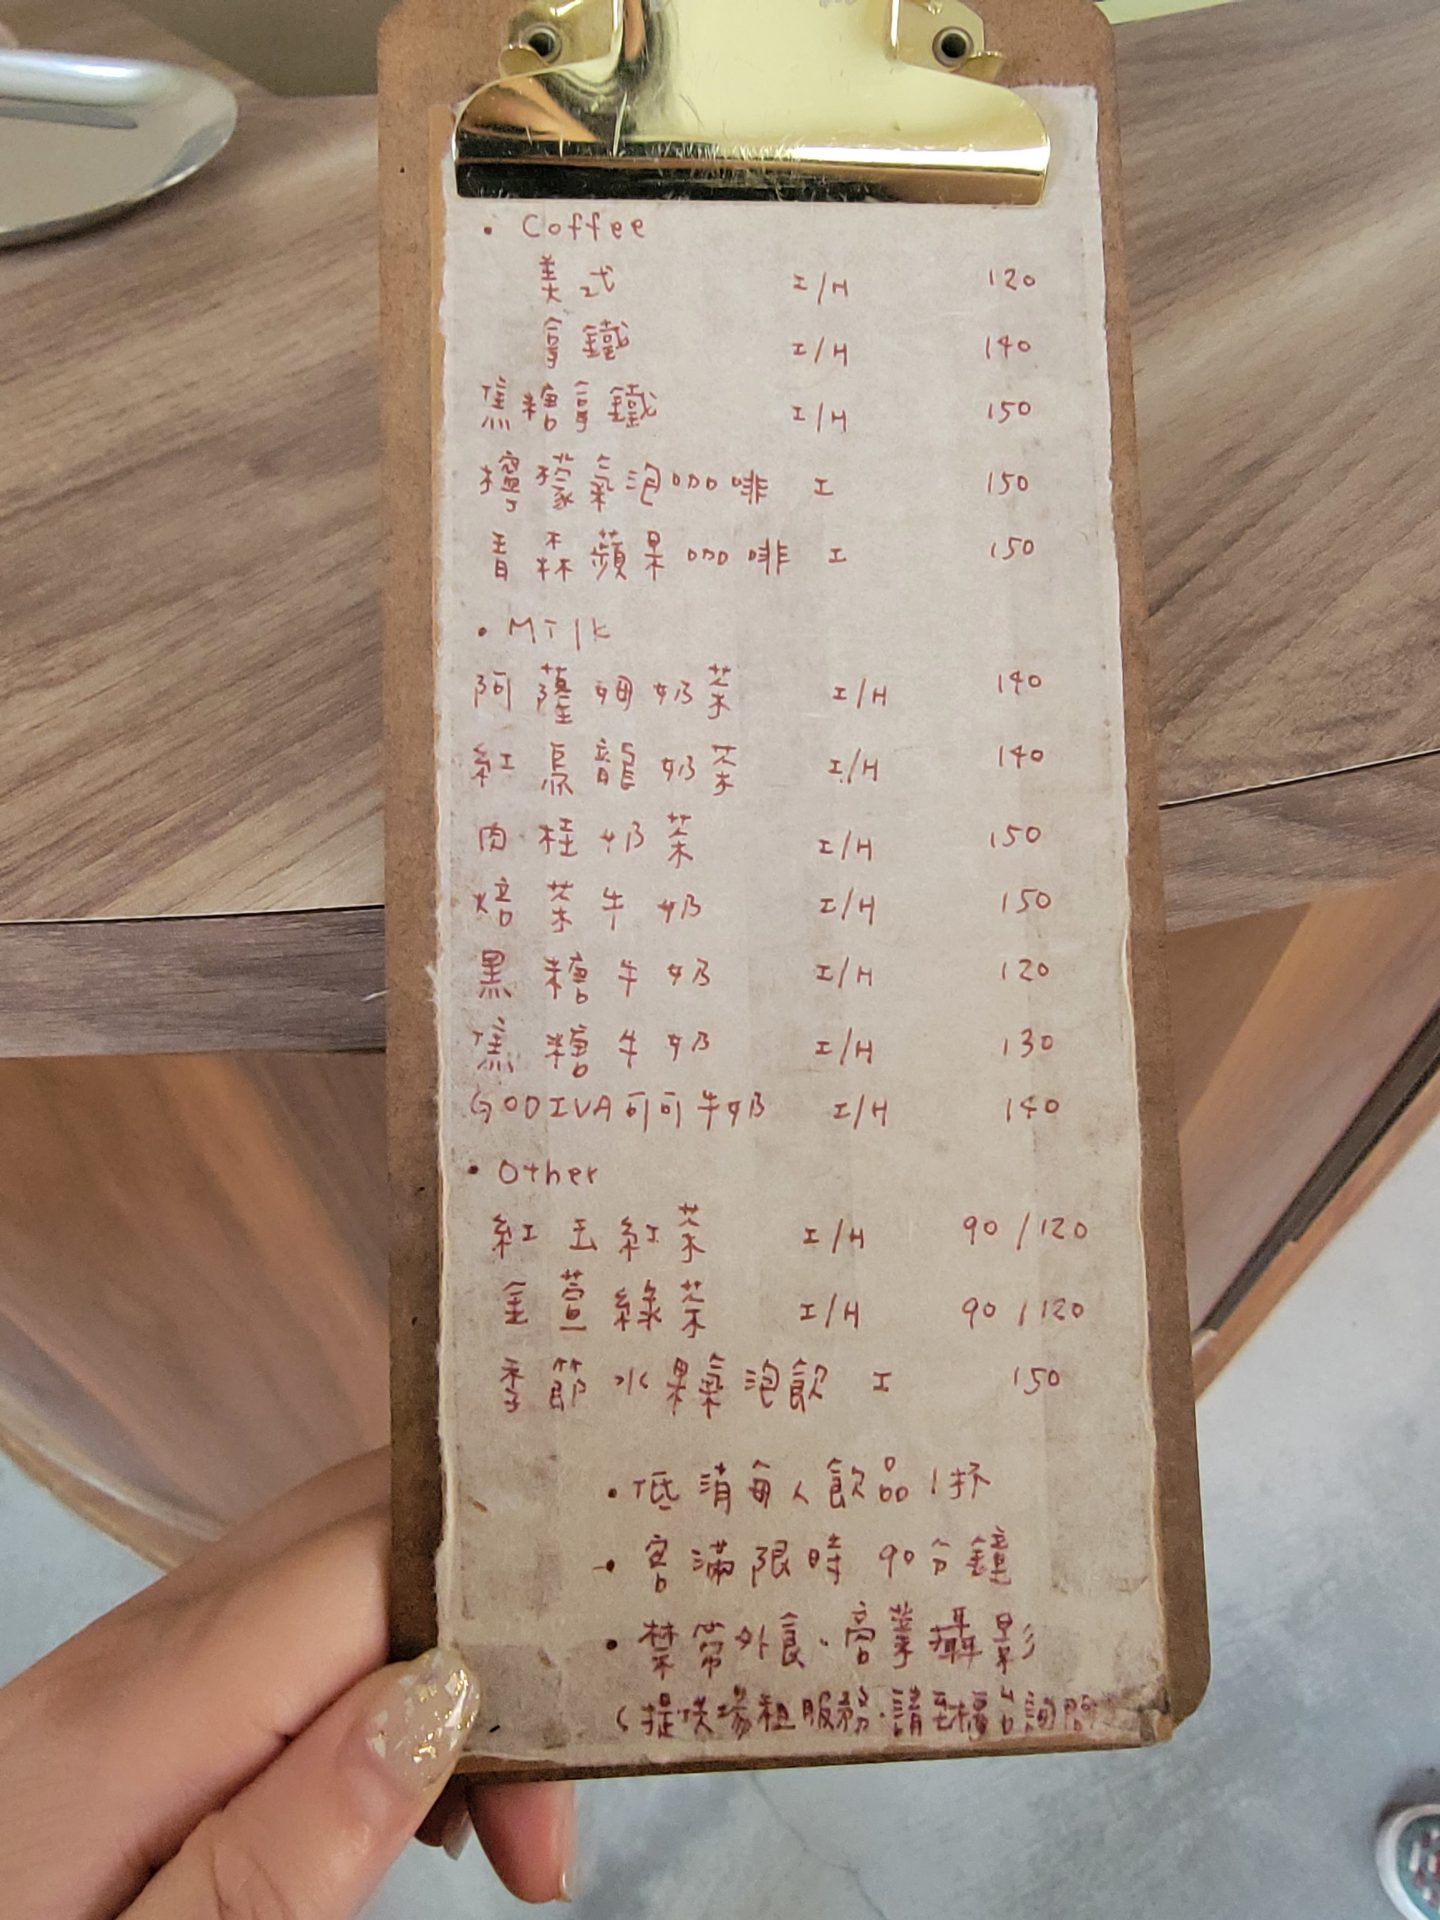 • Coffee
美式 I/H 120
拿鐵 I/H 140
焦糖拿鐵 I/H 150
檸檬氣泡咖啡 I 150
青森蘋果咖啡 I 150
• Milk
阿薩姆奶茶 I/H 140
紅烏龍奶茶 I/H 140
肉桂奶茶 I/H 150
焙茶牛奶 I/H 150
黑糖牛奶 I/H 120
焦糖牛奶 I/H 130
GODIVA可可牛奶 I/H 140
• Other
紅玉紅茶 I/H 90/120
金萱綠茶 I/H 90/120
季節水果氣泡飲 I 150
• 低消每人飲品1杯
• 客滿限時90分鐘
• 禁帶外食、商業攝影
(提供場租服務,請至櫃台詢問